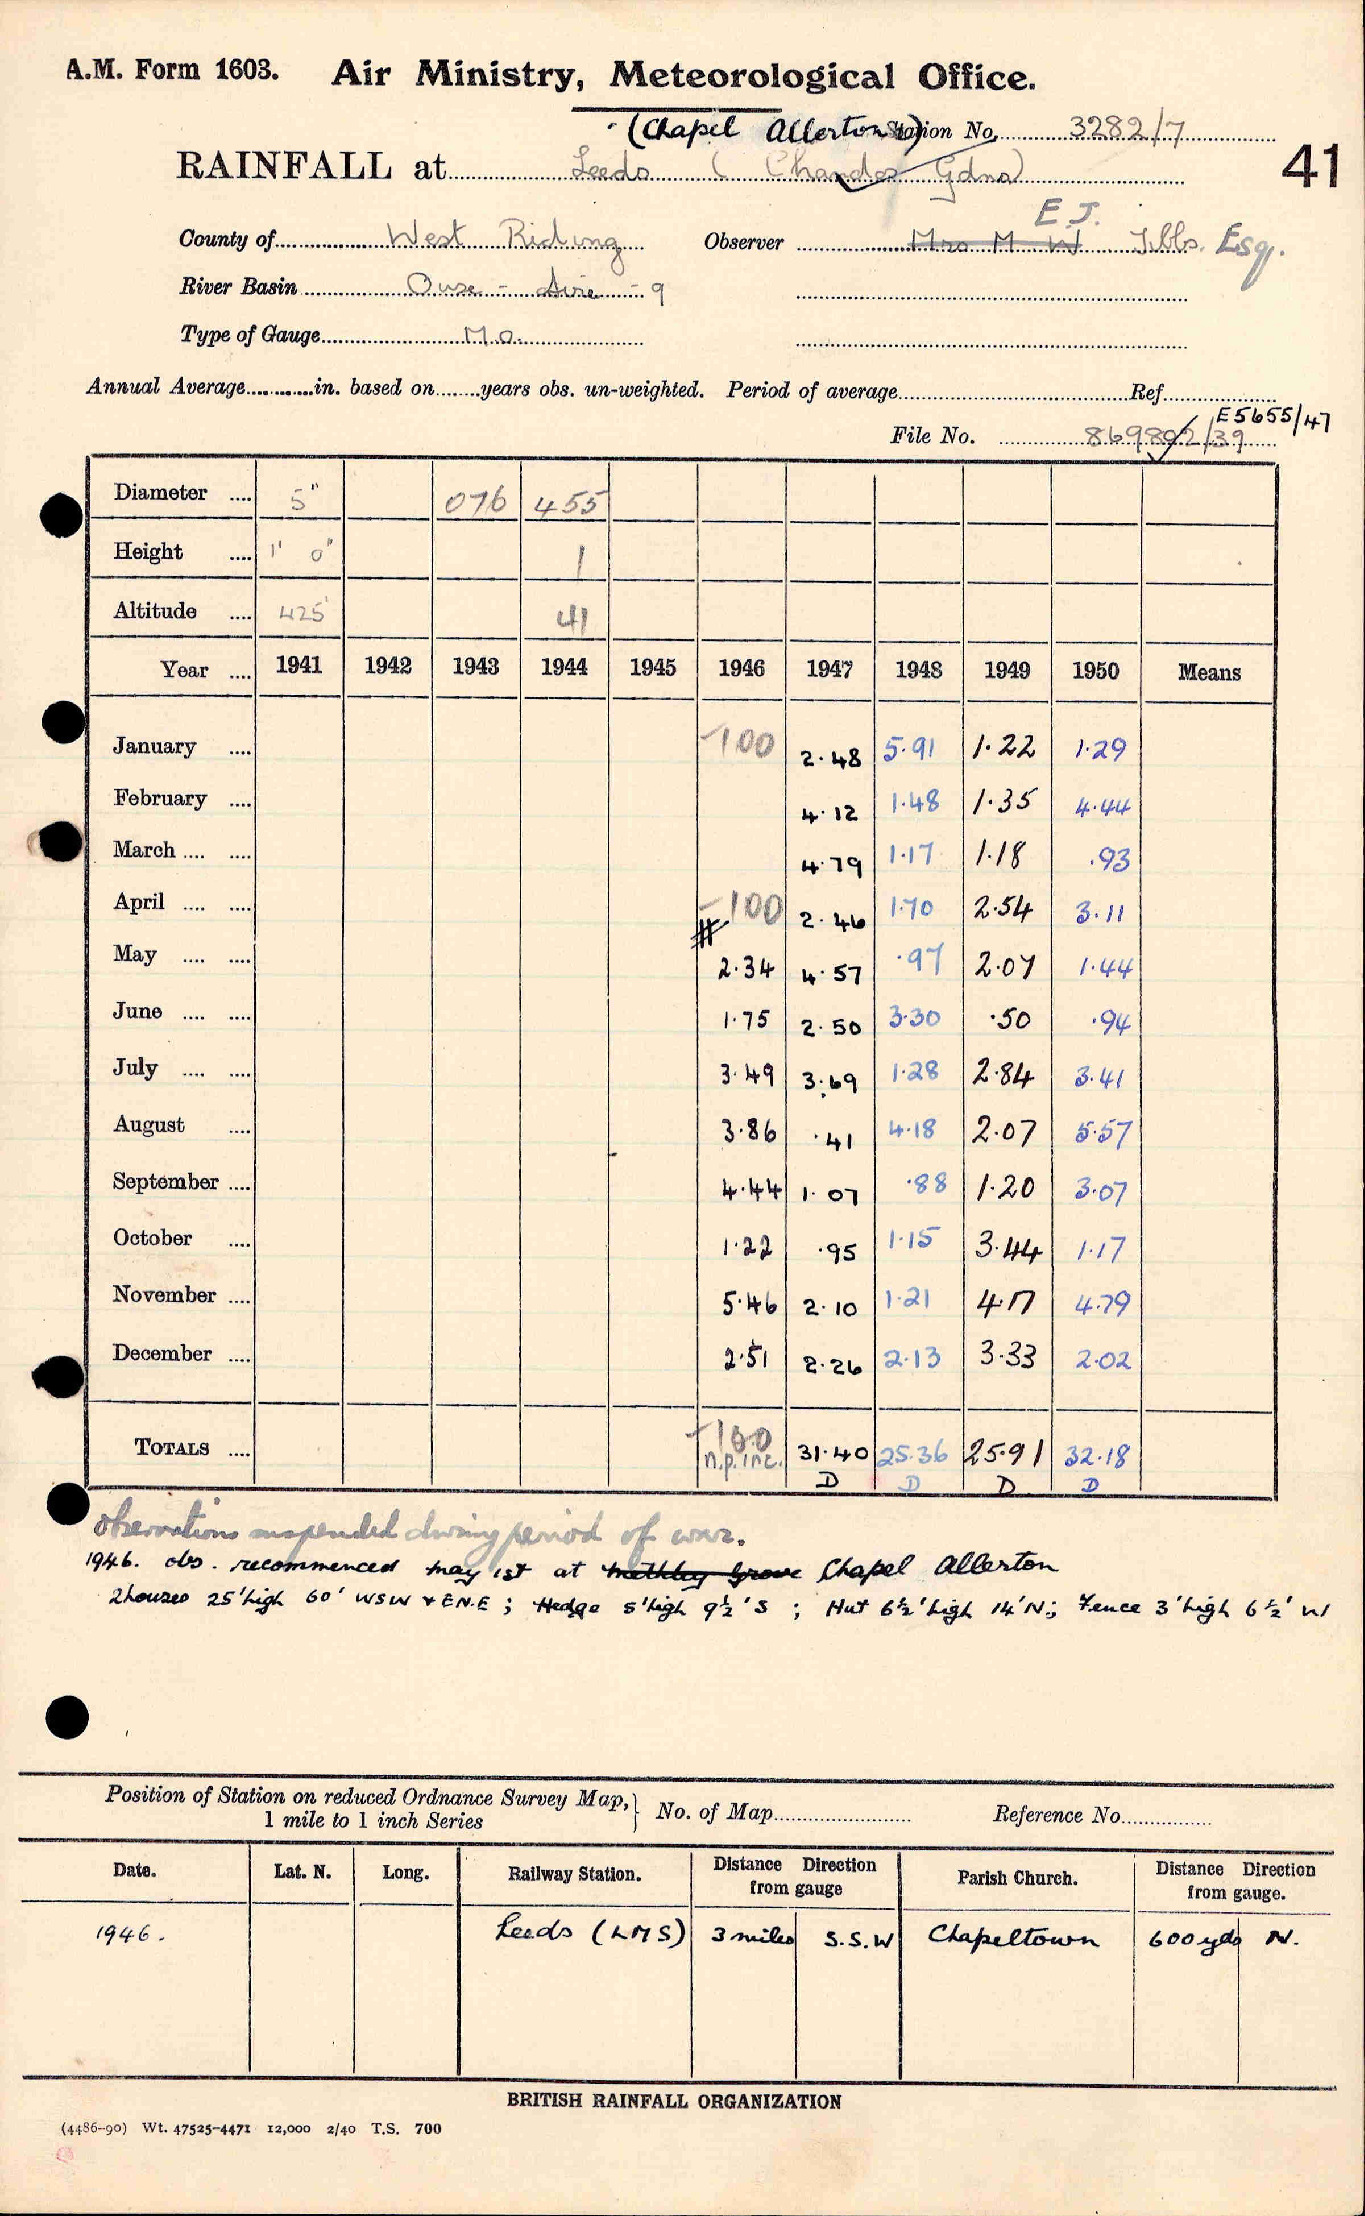 A.M. Form 1603. Air Ministry, Meteorological Office.
(Chapel Allerton) Station No. 3282/7
RAINFALL at Leeds (Chandos Gdns) 41
E J.
County of West Riding Observer Mrs M W Tibbs. Esq.
River Basin Ouse - Aire - 9
Type of Gauge M.O.
Annual Average............in. based on........years obs. un-weighted. Period of average Ref.
E5655/47
File No. 869802/39
Diameter .... 5" 076 455
Height .... 1' 0" 1
Altitude .... 425' 41
Year .... 1941 1942 1943 1944 1945 1946 1947 1948 1949 1950 Means
January .... -100 2.48 5.91 1.22 1.29
February .... 4.12 1.48 1.35 4.44
March .... .... 4.79 1.17 1.18 .93
April .... .... -100 2.46 1.70 2.54 3.11
May .... .... 2.34 4.57 .97 2.07 1.44
June .... .... 1.75 2.50 3.30 .50 .94
July .... .... 3.49 3.69 1.28 2.84 3.41
August .... 3.86 .41 4.18 2.07 5.57
September .... 4.44 1.07 .88 1.20 3.07
October .... 1.22 .95 1.15 3.44 1.17
November .... 5.46 2.10 1.21 4.17 4.79
December .... 2.51 2.26 2.13 3.33 2.02
TOTALS .... -100 n.p. inc. 31.40 25.36 25.91 32.18
D D D D
Observations suspended during period of war.
1946. obs. recommenced May 1st at Methley Grove Chapel Allerton
2 houses 25' high 60' WSW & ENE ; Hedge 5' high 9½' S ; Hut 6½' high 14' N ; Fence 3' high 6½' W
Position of Station on reduced Ordnance Survey Map, 1 mile to 1 inch Series } No. of Map Reference No.
Date. Lat. N. Long. Railway Station. Distance Direction from gauge Parish Church. Distance Direction from gauge.
1946. Leeds (LMS) 3 miles S.S.W Chapeltown 600 yds N.
BRITISH RAINFALL ORGANIZATION
(4486-90) Wt. 47525-4471 12,000 2/40 T.S. 700